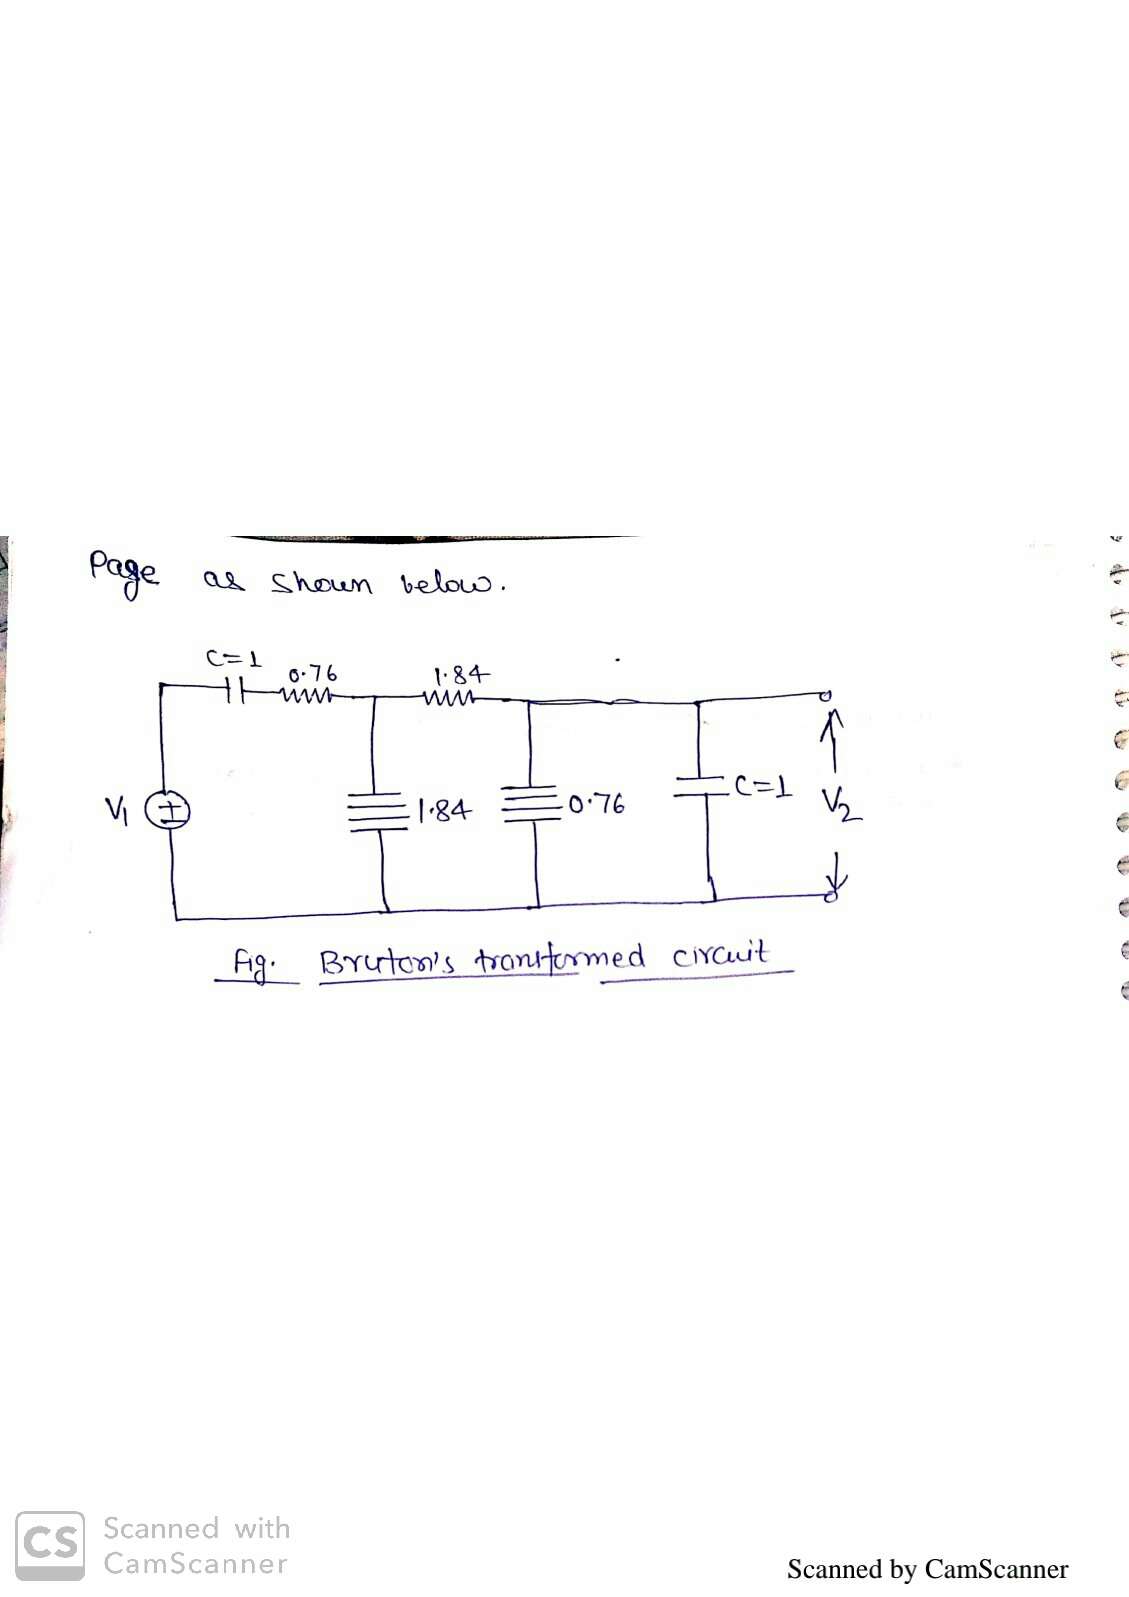 Page as shown below.
C=1
0.76
1.84
V1
1.84
0.76
C=1
V2
Fig. Bruton's transformed circuit
CS
Scanned with
CamScanner
Scanned by CamScanner